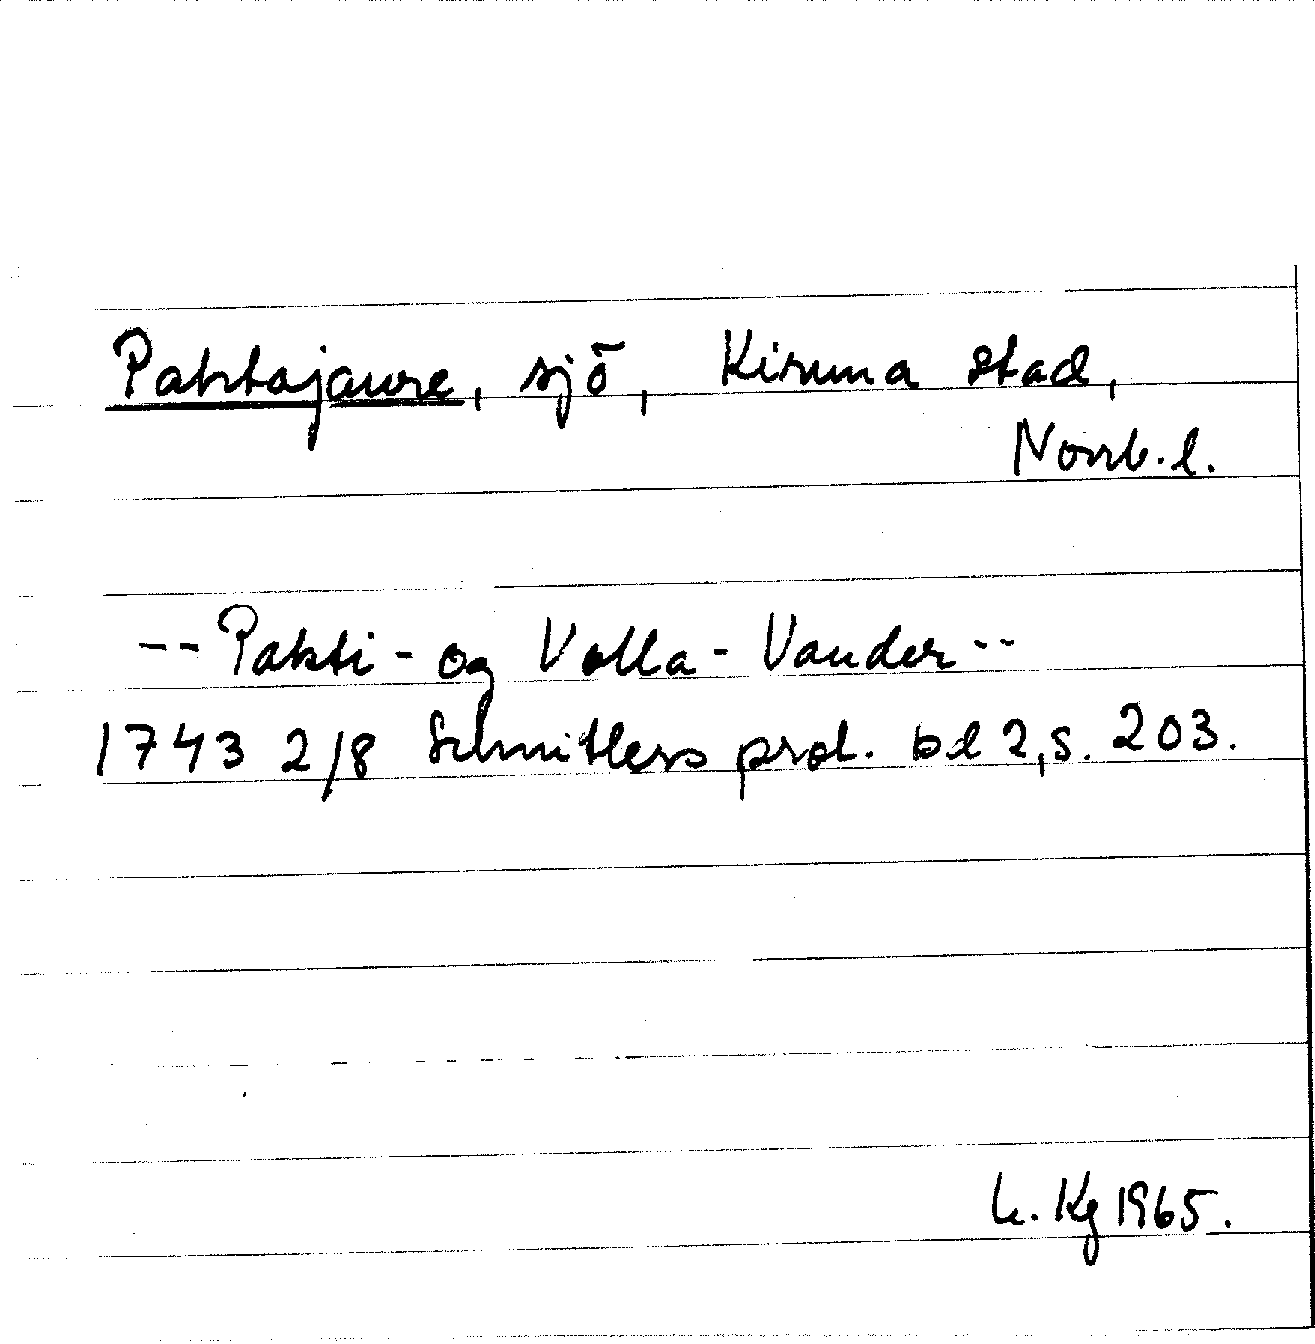 Pahtajaure, sjö, Kiruna stad,
Norrb. l.
-- Pakti- og Volla- Vander --
1743 2/8 Schnitlers prot. bd 2, s. 203.
Kg 1965.